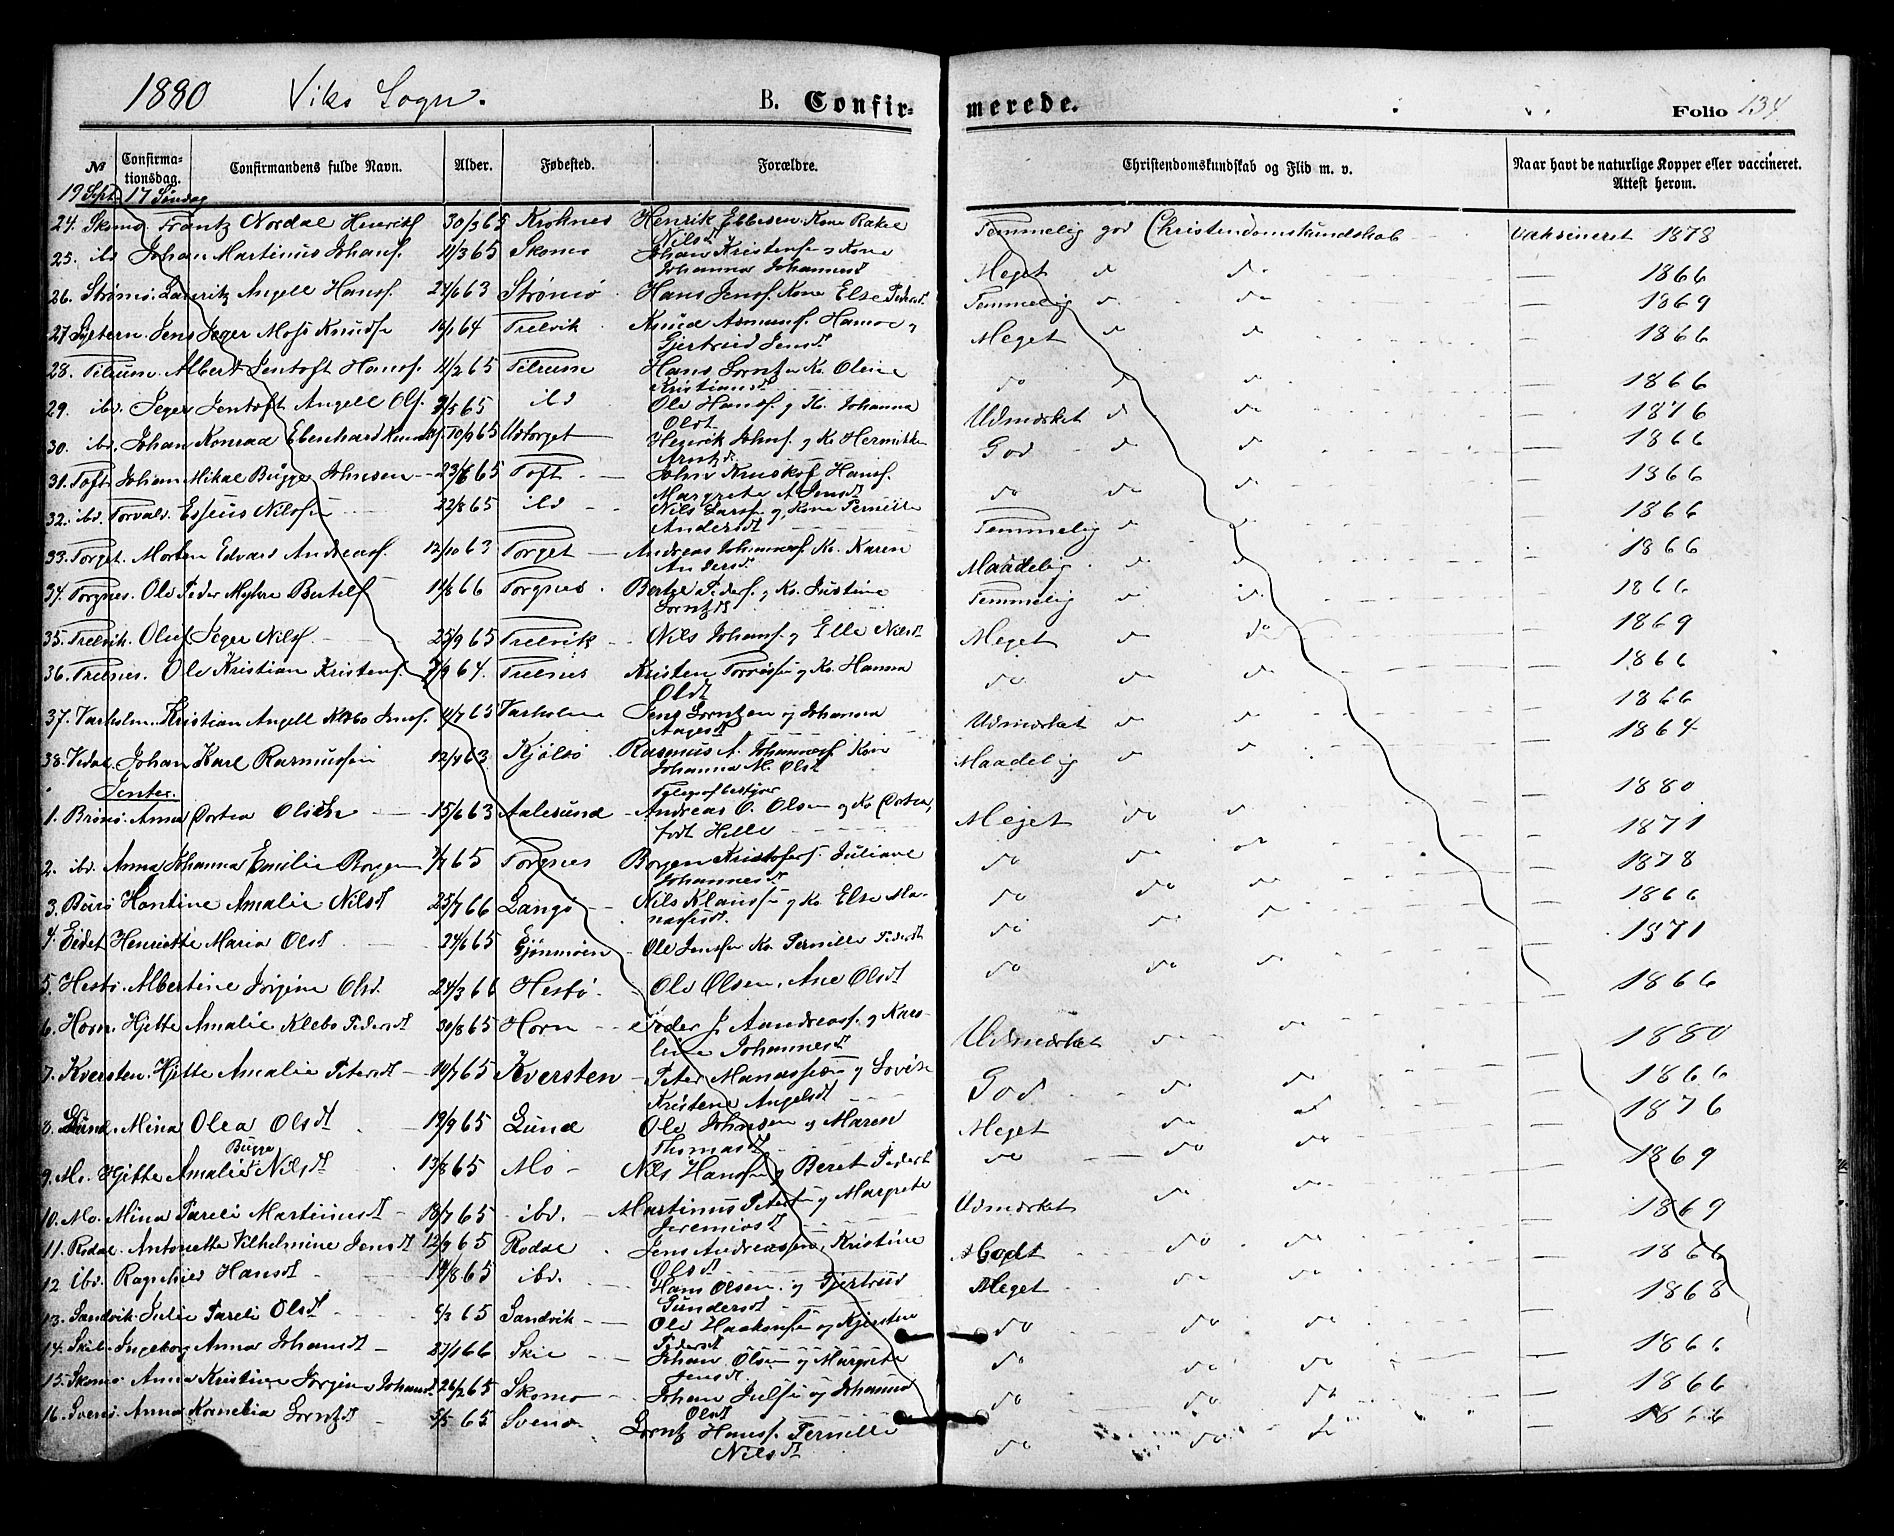 1880 Viks Sogn. B. Confirmerede. Folio 134
№ Confirmationsdag. Confirmandens fulde Navn. Alder. Fødested. Forældre. Christendomskundskab og Flid m. v. Naar havt de naturlige Kopper eller vaccineret. Attest herom.
19 Sept. 17 Søndag
24. Skomo Frantz Nordal Henrikss 30/3 65 Kroknes Henrik Ebbesen Kone Rakel Nilsdt Temmelig god Christendomskundskab Vaksineret 1878
25. ibd Johan Martinus Johans. 11/3 65 Skomo Johan Kristensen Kone Johanna Johannesdt Meget do do — 1866
26. Strømø. Lauritz Angell Hansf. 21/6 63 Strømø Hans Jensf. Kone Else Pedersdt Temmelig do do — 1869
27 Jens Jeger Moss Knudsen 16/1 64 Trelvik Knud Asmunsf. Gjertrud Jensdt Meget do do — 1866
28. Tilrum. Albert Jentoft Hansf. 11/2 65 Tilrum Hans Lorntzen Ko Oline Kristiansdt do do do — 1866
29. ibd. Jeger Jentoft Angell Olsf. 9/5 65 ibd Ole Hansf. og Ko. Johanna Olsdt Udmærket do do — 1876
30. ibd. Johan Konrad Ebenhard 10/9 65 Udtorget Henrik Johnsf. og Ko Arntzdt. God do do — 1866
31. Toft Johan Mikal Bugge Johnsen 23/6 65 Toft Hansf. Margrete A. Jensdt do do do — 1866
32. ibd. Torvald Esjeus Nilssen 22/8 65 ibd Nils Larsen og Kone Pernille Andersdt Temmelig do do — 1866
33. Torget. Morten Edvard Andreasf. 12/10 63 Torget Andreas Johannesf. Ko. Karen Andersdt Maadelig do do — 1866
34. Torgnes. Ole Peder Myhre Bertelsf 11/8 66 Torgnes Bertel Pedersf. og Ko. Justine Lorntzdt Temmelig do do — 1866
35. Trelvik. Oluf Jeger Nilsf. 25/9 65 Trelvik Nils Johansf. og Elle Nilsdt Meget do do — 1869
36. Trelnes. Ole Kristian Kristensf. 7/9 64. Trelnes Kristen og Ko. Hanna Olsdt do do do — 1866
37. Varholm. Kristian Angell Klæbo Jensf. 11/7 65 Varholm Jens Lorntzen og Johanna Udmærket do do — 1866
1864
38. Vedal Johan Karl Rasmussen 12/4 63 Kjølsø Rasmus A. Johannesf. Kone Johanna M. Olsdt Maadelig do do
Jenter.
1. Brønø. Anna Dortea Olsen 15/6 63 Aalesund Telegrafbestyrer Andreas O. Olsen og Ko Dortea, født Helle Meget do do — 1880
2. ibd. Anna Johanna Emilie Borgen 7/7 65 Torgnes Borgen Kristofersf. Juliane Johannesdt do do do — 1871
3. Burø Hantine Amalie Nilsdt 25/7 66 Langø Nils Klausen og Ko. Else Manassesdt. do do do — 1878
4. Eidet Henriette Maria Olsdt 24/6 65 Gjønmoen Ole Jensen Ko. Pernille Pedersdt do do do — 1866
1871
5. Hestø. Albertine Jørgine Olsd. 24/3 66 Hestø Ole Olsen, Ane Olsdt do do do — 1866
6. Horn. Hjette Amalie Klebo Pedersdt 30/8 65 Horn Peder J. Aandreasf. og Karoline Johannesdt Udmærket do do — 1880
7. Kversten. Hjette Amalie Petersdt 10/7 65 Kversten Peter Manassen og Lovise Kristene Angelsdt God do do — 1866
8. Lund. Mina Olea Olsdt 19/9 65 Lund Ole Johnsen og Maren Thomasdt Meget do do — 1876
9. Mo. Hjette Amalie Bugge Nilsdt 13/8 65 Mo Nils Hansen og Beret Pedersdt do do do — 1869
10. Mo. Mina Pareli Martinusdt 18/7 65 ibd. Martinus Petersen og Margrete Jeremiasdt Udmærket do do — 1869
11. Rodal. Antonette Vilhelmine Jensdt 12/9 65 Rodal Jens Andreassen, Kristine Olsdt Godt do do — 1866
12 ibd. Ragnhild Hansdt 19/8 65 ibd. Hans Olsen og Gjertrud Gundersdt Meget do do — 1868
13. Sandvik. Julie Pareli Olsdt 6/3 65 Sandvik Ole Haakonsen og Kjerstine Pedersdt do do do
14. Skil. Ingeborg Anna Johansdt 27/1 66 Skil Johan Olsen og Margrete Jensdt do do do — 1866
15. Skomo Anna Kristine Jørgine Johansdt 26/2 65 Skomo Johan Julsen og Johanna Olsdt do do do — 1866
16. Svenø. Anna Kornelia Lorntzdt 5/5 65 Svenø Lorntz Hansf. Pernille Nilsdt do do do — 1866